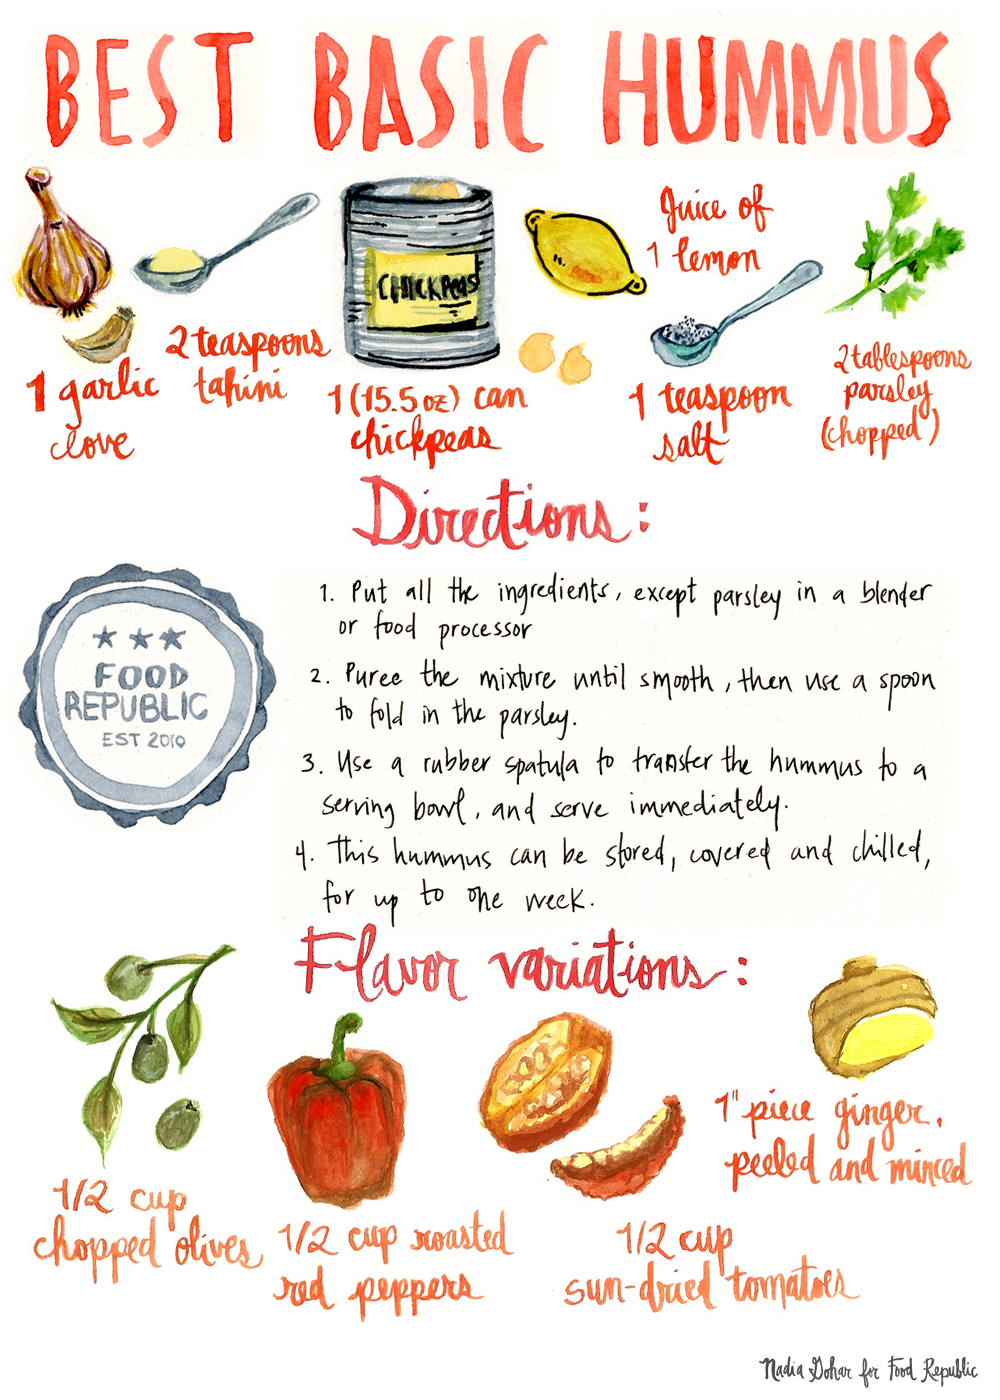 BEST BASIC HUMMUS
1 garlic
clove
2 teaspoons
tahini
CHICKPEAS
1 (15.5 oz) can
chickpeas
Juice of
1 lemon
1 teaspoon
salt
2 tablespoons
parsley
(chopped)
Directions:
FOOD
REPUBLIC
EST 2010
1. Put all the ingredients, except parsley in a blender
or food processor
2. Puree the mixture until smooth, then use a spoon
to fold in the parsley.
3. Use a rubber spatula to transfer the hummus to a
serving bowl, and serve immediately.
4. This hummus can be stored, covered and chilled,
for up to one week.
Flavor variations:
1/2 cup
chopped olives
1/2 cup roasted
red peppers
1/2 cup
sun-dried tomatoes
1" piece ginger,
peeled and minced
Nadia Gohar for Food Republic